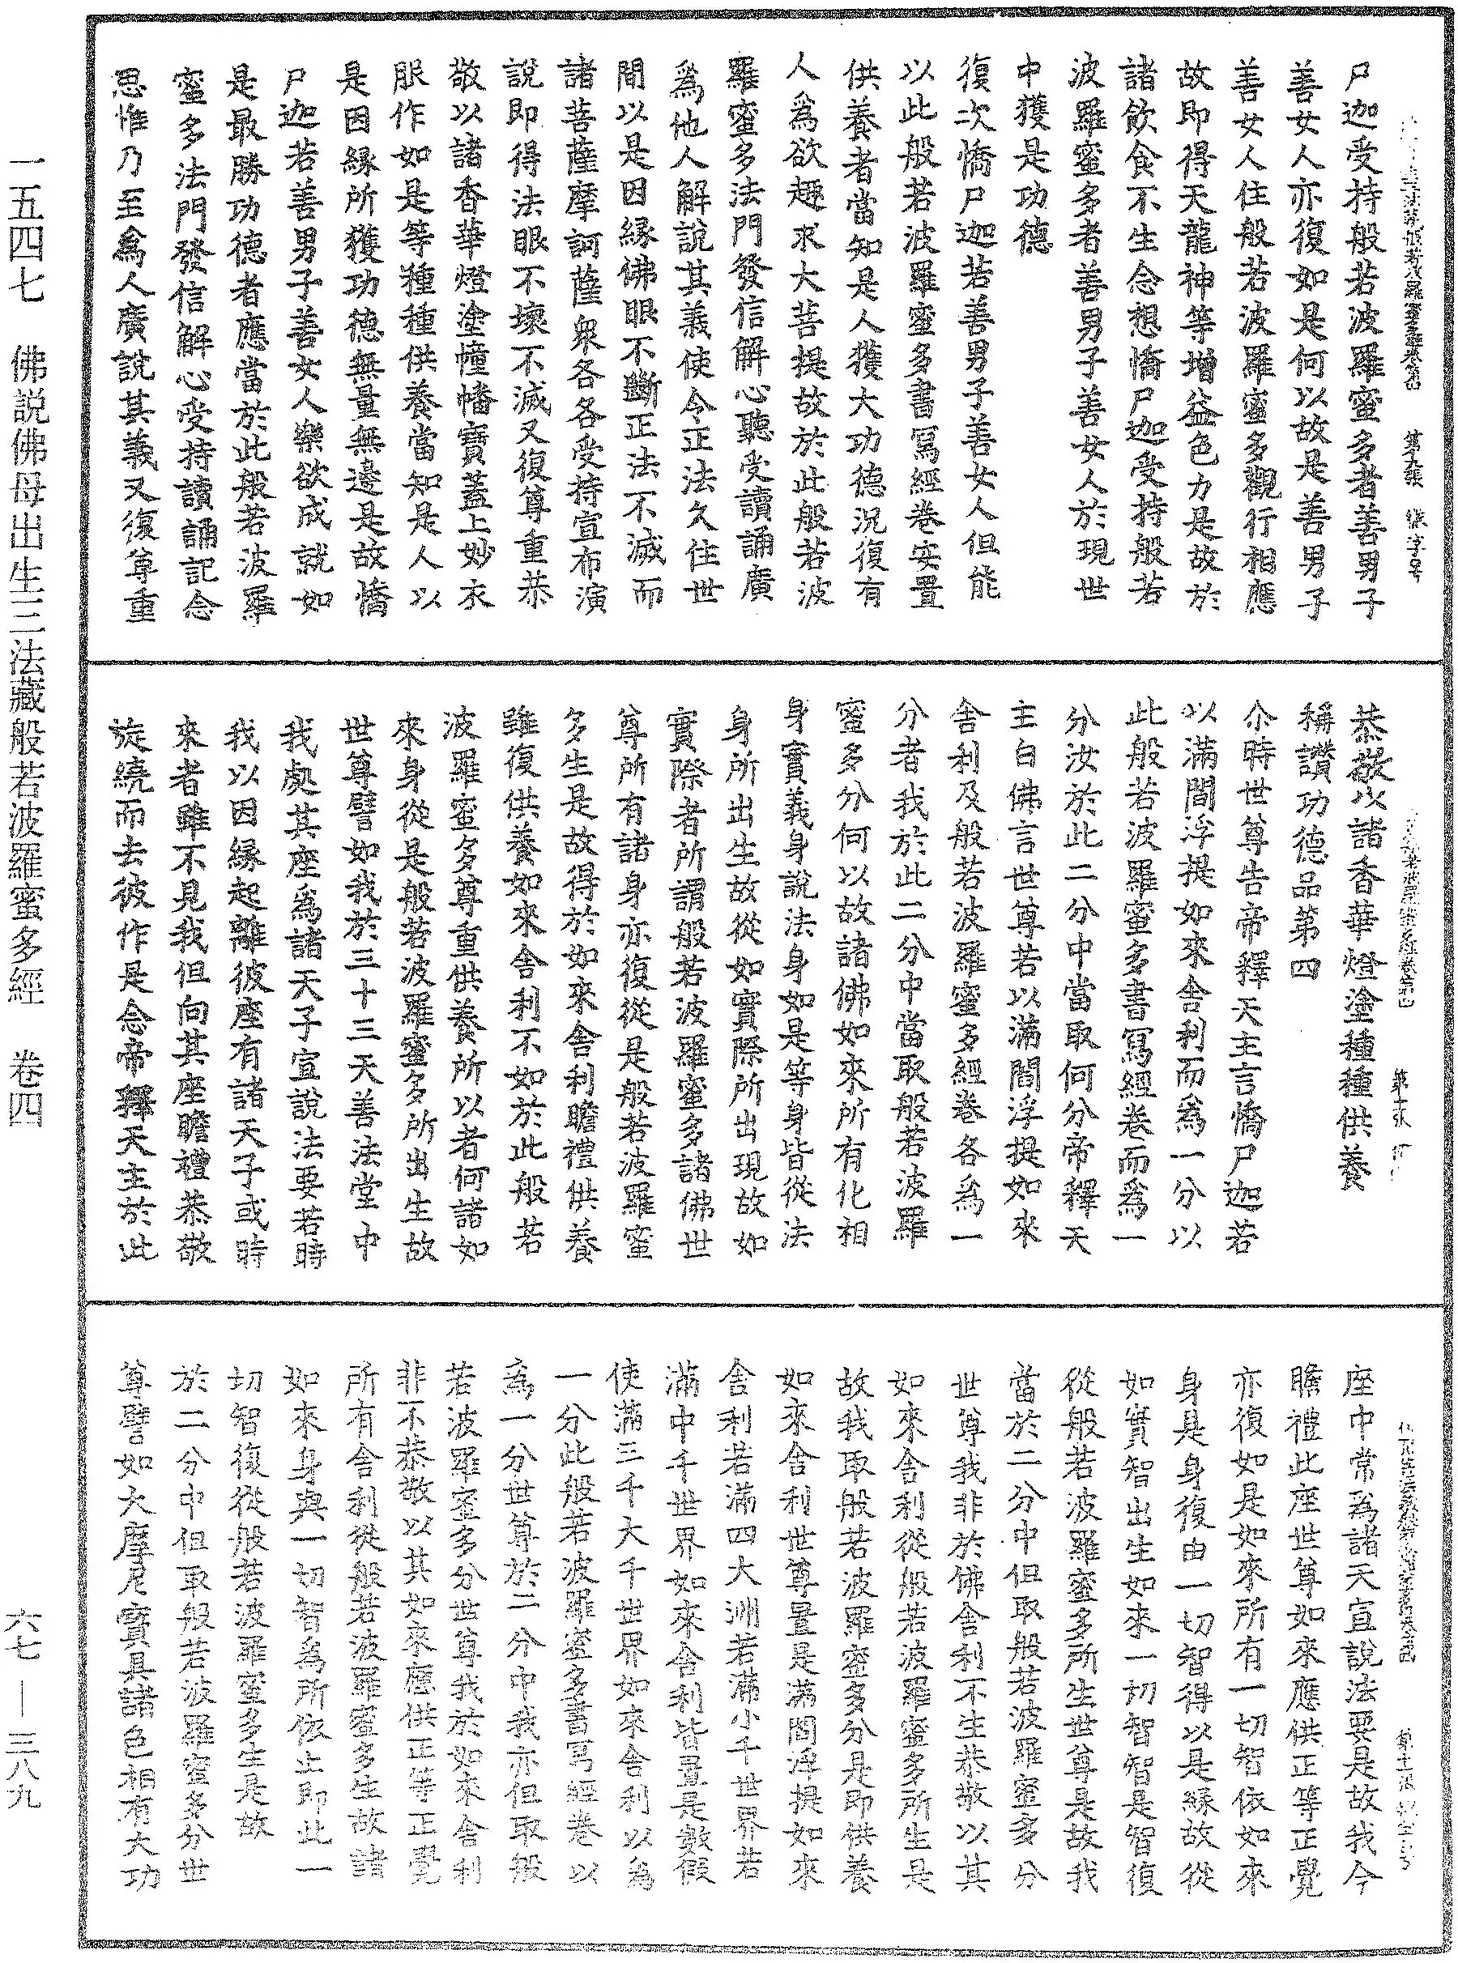 尸迦受持般若波羅蜜多者善男子
善女人亦復如是何以故是善男子
善女人住般若波羅蜜多觀行相應
故即得天龍神等增益色力是故於
諸飲食不生念想憍尸迦受持般若
波羅蜜多者善男子善女人於現世
中獲是功德
復次憍尸迦若善男子善女人但能
以此般若波羅蜜多書寫經卷安置
供養者當知是人獲大功德況復有
人為欲趣求大菩提故於此般若波
羅蜜多法門發信解心聽受讀誦廣
為他人解說其義使令正法久住世
間以是因緣佛眼不斷正法不滅而
諸菩薩摩訶薩眾各各受持宣布演
說即得法眼不壞不滅又復尊重恭
敬以諸香華燈塗幢幡寶蓋上妙衣
服作如是等種種供養當知是人以
是因緣所獲功德無量無邊是故憍
尸迦若善男子善女人樂欲成就如
是最勝功德者應當於此般若波羅
蜜多法門發信解心受持讀誦記念
思惟乃至為人廣說其義又復尊重
恭敬以諸香華燈塗種種供養
稱讚功德品第四
尒時世尊告帝釋天主言憍尸迦若
以滿閻浮提如來舍利而為一分以
此般若波羅蜜多書寫經卷而為一
分汝於此二分中當取何分帝釋天
主白佛言世尊若以滿閻浮提如來
舍利及般若波羅蜜多經卷各為一
分者我於此二分中當取般若波羅
蜜多分何以故諸佛如來所有化相
身實義身說法身如是等身皆從法
身所出生故從如實際所出現故如
實際者所謂般若波羅蜜多諸佛世
尊所有諸身亦復從是般若波羅蜜
多生是故得於如來舍利瞻禮供養
雖復供養如來舍利不如於此般若
波羅蜜多尊重供養所以者何諸如
來身從是般若波羅蜜多所出生故
世尊譬如我於三十三天善法堂中
我處其座為諸天子宣說法要若時
我以因緣起離彼座有諸天子或時
來者雖不見我但向其座瞻禮恭敬
旋繞而去彼作是念帝釋天主於此
座中常為諸天宣說法要是故我今
瞻禮此座世尊如來應供正等正覺
亦復如是如來所有一切智依如來
身是身復由一切智得以是緣故從
如實智出生如來一切智智是智復
從般若波羅蜜多所生世尊是故我
當於二分中但取般若波羅蜜多分
世尊我非於佛舍利不生恭敬以其
如來舍利從般若波羅蜜多所生是
故我取般若波羅蜜多分是即供養
如來舍利世尊置是滿閻浮提如來
舍利若滿四大洲若滿小千世界若
滿中千世界如來舍利皆置是數假
使滿三千大千世界如來舍利以為
一分此般若波羅蜜多書寫經卷以
為一分世尊於二分中我亦但取般
若波羅蜜多分世尊我於如來舍利
非不恭敬以其如來應供正等正覺
所有舍利從般若波羅蜜多生故諸
如來身與一切智為所依止即此一
切智復從般若波羅蜜多生是故
於二分中但取般若波羅蜜多分世
尊譬如大摩尼寶具諸色相有大功
一五四七 佛説佛母出生三法藏般若波羅蜜多經 卷四
六七 — 三八九